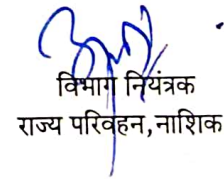 विभाग नियंत्रक
राज्य परिवहन,नाशिक